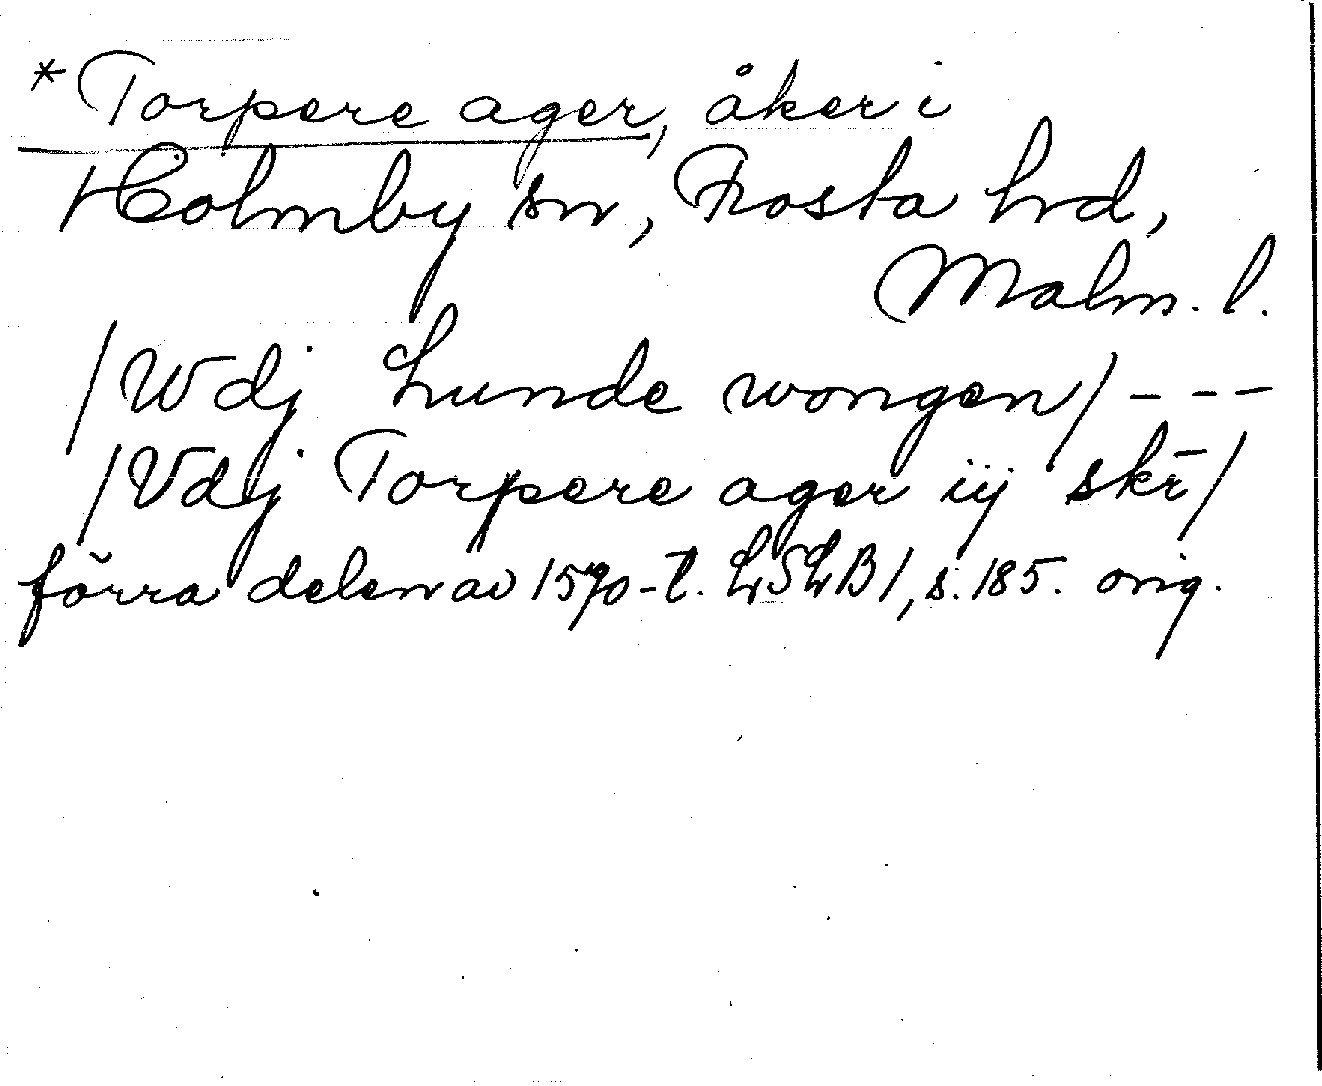 *Torpere ager, åker i
Holmby sn, Frosta hd,
Malm. l.
/Wdj Lunde wongen/ - - -
/Vdj Torpere ager iij skr̄/
förra delen av 1570-t. LSLB 1, s. 185. orig.